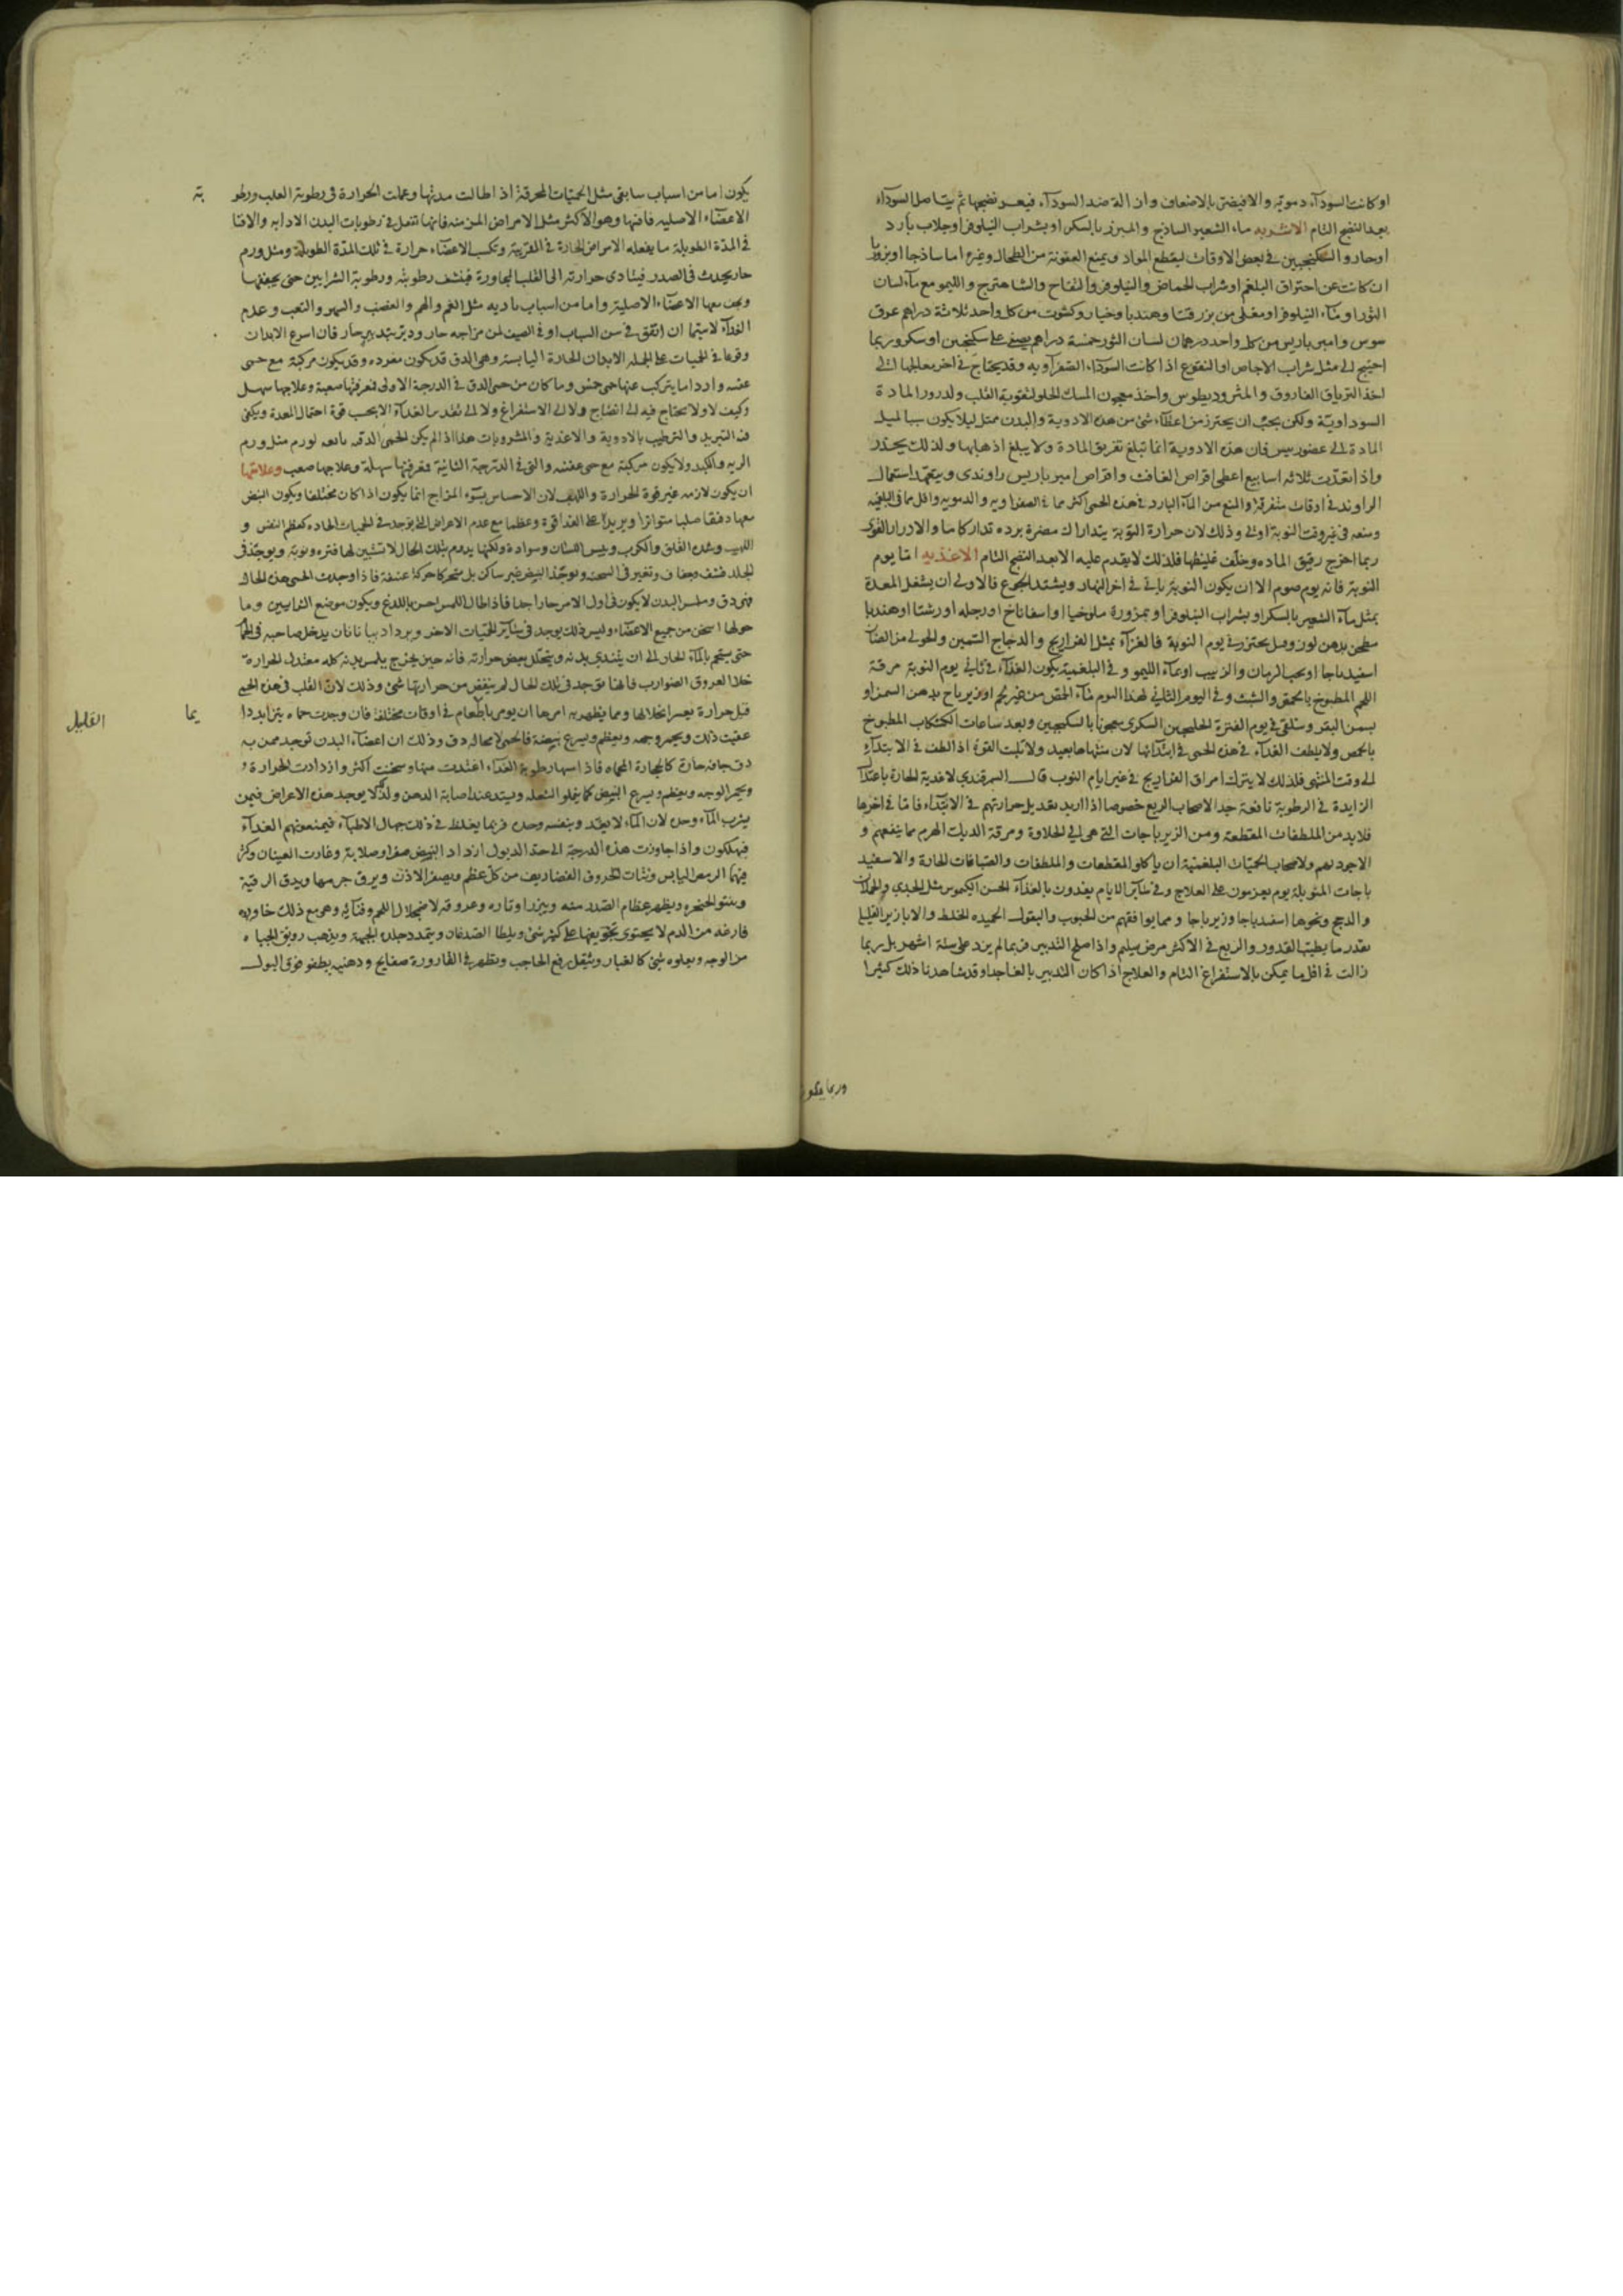 او كانت السودآء دموية والا فيضتى بالاضعاف وازالة ضد السودآء فيعسر نضجها ثم يتاصل السودآء
بعد النضج التام الاشربه ماء الشعير الساذج والمبزر بالسكر او بشراب النيلوفر او جلاب بارد
او حار والسكنجبين فى بعض الاوقات ليقطع المواد ويمنع العفونة من الطحال وغيره اما ساذجا او بزوريا
ان كانت عن احتراق البلغم او شراب الحماض والنيلوفر والتفاح والشاهترج والليمو مع مآء لسان
الثور او مآء النيلوفر او مغلى من بزر قثا وهندبا وخيار وكشوت من كل واحد ثلاثة دراهم عرق
سوس وامير باريس من كل واحد درهمان لسان الثور خمسة دراهم يصفى على سكنجبين او سكر وربما
احتيج الى مثل شراب الاجاص او النقوع اذا كانت السودآء الصفرآويه وقد يحتاج فى اخر معلجها الى
اخذ الترياق الفاروق والمثروديطوس واخذ معجون المسك الحلو لتقوية القلب ولدرور المادة
السوداوية ولكن يجب ان يحترز من اعطاء شئ من هذه الادوية والبدن ممتل ليلا يكون سبيا لميل
المادة الى عضو رييس فان هذه الادوية انما تبلغ تفريق المادة ولا يبلغ اذهابها ولذلك يحذر
واذا تعدت ثلاثه اسابيع اعطى اقراص الغافث واقراص امير باريس راوندى ويتعهد استعمال
الراوند فى اوقات متفرقة والمنع من المآء البارد فى هذه الحمى اكثر مما فى الصفراويه والدمويه واقل مما فى البلغميه
ومنعه فى غير وقت النوبة اولى وذلك لان حرارة النوبة يتدارك مضرة برده تداركا ما والادرار القوى
ربما اخرج رقيق الماده وخلف غليظها فلذلك لا يقدم عليه الا بعد النضج التام الاغذيه اما يوم
النوبة فانه يوم صوم الا ان يكون النوبة تاتى فى اخر النهار ويشتد الجوع فالاولى ان يشغل المعدة
بمثل مآء الشعير بالسكر او بشراب النيلوفر او بمزورة ملوخيا او اسفاناخ او رجله او رشتا او هندبا
مطجن بدهن لوز وبصل يحترز فى يوم النوبة فالغذآء بمثل الفراريج والدجاج السمين والحولى من الضان
اسفيدباجا او بحب الرمان والزبيب او بمآء الليمو وفى البلغمية يكون الغذآء فى ثانى يوم النوبة مرقة
اللحم المطبوخ بالحمص والشبث وفى اليوم الثانى لهذا اليوم مآء الحمص من غير لحم او زيرباج بدهن السمن او
بسمن البقر وسلقى فى يوم الفترة الجلنجبين السكرى معجونا بالسكنجبين وبعد ساعات الكشكاب المطبوخ
بالحمص ولا يلطف الغذآء فى هذه الحمى فى ابتدائها لان منتهاها بعيد ولا تثبت القوة اذا لطف فى الابتدآء
الى وقت المنتهى فلذلك لا يترك امراق الفراريج فى غير ايام النوب قال السمرقندى الاغذية الحارة باعتدال
الزايدة فى الرطوبة نافعة جدا لاصحاب الربع خصوصا اذا اريد تعديل حرارتهم فى الابتدآء فاما فى اخرها
فلابد من الملطفات المقطعه ومن الزيرباجات التى هى الى الحلاوة ومرقة الديك الهرم مما ينفعهم و
الاجود لهم ولاصحاب الحميات البلغمية ان ياكلو المقطعات والملطفات والقنافات الحارة والاسفيد
باجات المتوبلة يوم يعزمون على العلاج وفى سآئر الايام يغذون بالغذآء الحسن الكيموس مثل الجدى والحملان
والدجج ونحوها اسفيدباجا وزيرباجا ومما يوافقهم من الحبوب والبقول الحميده الخلط والابازير القليل
بقدر ما يطيب القدور والربع فى الاكثر مرض سليم واذا صلح التدبير فربما لم يزد على سنة اشهر بل ربما
زالت فى اقل ما يمكن بالاستفراغ التام والعلاج اذا كان التدبير بالغا جدا وقد شاهدنا ذلك كثيرا
وربما يكون
يكون اما من اسباب سابقى مثل الحميات المحرقة اذا طالت مدتها وعملت الحرارة فى رطوبة القلب ورطو بة
الاعضآء الاصليه فافنتها وهو الاكثر مثل الامراض المزمنه فانها تفعل فى رطوبات البدن الادابه والافنا
فى المدة الطويلة ما يفعله الامراض الحادة فى القريبة وتكسب الاعضآء حرارة فى تلك المدة الطويلة ومثل ورم
حار يحدث فى الصدر فيتادى حرارته الى القلب المجاورة فينشف رطوبته ورطوبة الشرايين حتى يجففها
ويجف معها الاعضآء الاصلية واما من اسباب باديه مثل الغم والهم والغضب والسهر والتعب وعدم
الغدآء لاسيما ان اتفق فى سن الشباب او فى الصيف لمن مزاجه حار ودبر بتدبير حار فان اسرع الابدان
وقوعا فى الحميات على الجمله الابدان الحارة اليابسة وهى الدق قد يكون مفرده وقد يكون مركبة مع حمى
عفنه واردا ما يتركب عنها حمى خمس وما كان من حمى الدق فى الدرجة الاولى فمعرفتها صعبة وعلاجها سهل
وكيف لا ولا يحتاج فيه الى انضاج ولا الى الاستفراغ ولا الى تقدير الغدآء الا بحسب قوة احتمال المعدة ويكفى
فيه التبريد والترطيب بالادوية والاغذية والمشروبات هذا اذا لم يكن الحمى الدقيه تابعه لورم مثل ورم
الريه والكبد ولا يكون مركبة مع حمى عفنه والتى فى الدرجة الثانية فمعرفتها سهلة وعلاجها صعب وعلامتها
ان يكون لازمه غير قوة الحرارة واللهيب لان الاحساس بسوء المزاج انما يكون اذا كان مختلفا ويكون النبض
معها دقيقا صلبا متواترا ويزيد على الغدآ قوة وعظما مع عدم الاعراض التى يوجد فى الحميات الحاده كعظم النفس و
اللهيب وشدة القلق والكرب ويبس اللسان وسوادة ولكنها يدوم بتلك الحال لا تتبين لها فتره ونوبة ويوجد فى
الجلد قشف وجفاف وتغير فى السحنه ويوجد النبض غير ساكن بل متحركا حركة عنيفة فاذا وجدت الحمى هذه الحال
فهى دق وملمس البدن لا يكون فى اول الامر حارا جدا فاذا طال اللمس احس باللدغ ويكون موضع الشرايين وما
حولها اسخن من جميع الاعضآء وليس ذلك يوجد فى سائر الحميات الاخر ويزداد بيانا بان يدخل صاحبه فى الحمام
حتى يستحم بالمآء الحار الى ان يتندى بدنه ويتحلل بعض حرارته فانه حين يخرج يلمس بدنه كله معتدل الحرارة
خلا العروق الضوارب فانها توجد فى تلك الحال لم ينقص من حرارتها شئ وذلك لان القلب فى هذه الحمى
يما
القليل
قبل حرارة يعسر انحلالها ومما يظهر به امرها ان يومى بالطعام فى اوقات مختلفة فان وجدت حماه يتزايد دا
عقيب ذلك ويحمر وجهه ويعظم ويسرع نبضه فالحمى لا محاله دق وذلك ان اعضآء البدن توجد ممن به
دق جافه حارة كالحجارة المحماه فاذا اسها رطوبة الغدآء اغتدت منها وسخنت اكثر وازدادت الحرارة و
يحمر الوجه ويعظم ويسرع النبض كما يغلو الشعله ويشتد عند اصابة الدهن ولذلك لا يوجد هذه الاعراض فيمن
يشرب المآء وحده لان المآء لا يغذ وبنفسه وحده فربما يغلط فى ذلك جهال الاطبآء فيمنعونهم الغدآء
فيهلكون واذا جاوزت هذه الدرجة الى حد الدبول ازداد النبض صغرا وصلابة وغارت العينان وكثر
فيهما الرمص اليابس ونتات الحروف الغضاريف من كل عظم ويصغر الاذن ويرق جرمها ويدق الرقبة
وينتو الحنجره ويظهر عظام الصدر منه ويبرز اوتاره وعروقه لاضمحلال اللحم وفنآئه وهى مع ذلك خاويه
فارغه من الدم لا يحتوى تجويفها على كثير شئ ويلطا الصدغان ويتمدد جلدة الجبهة ويذهب رونق الحياه
من الوجه ويعلوه شئ كالغبار ويثقل رفع الحاجب ويظهر فى القارورة صفايح ودهنيه يطفو فوق البول